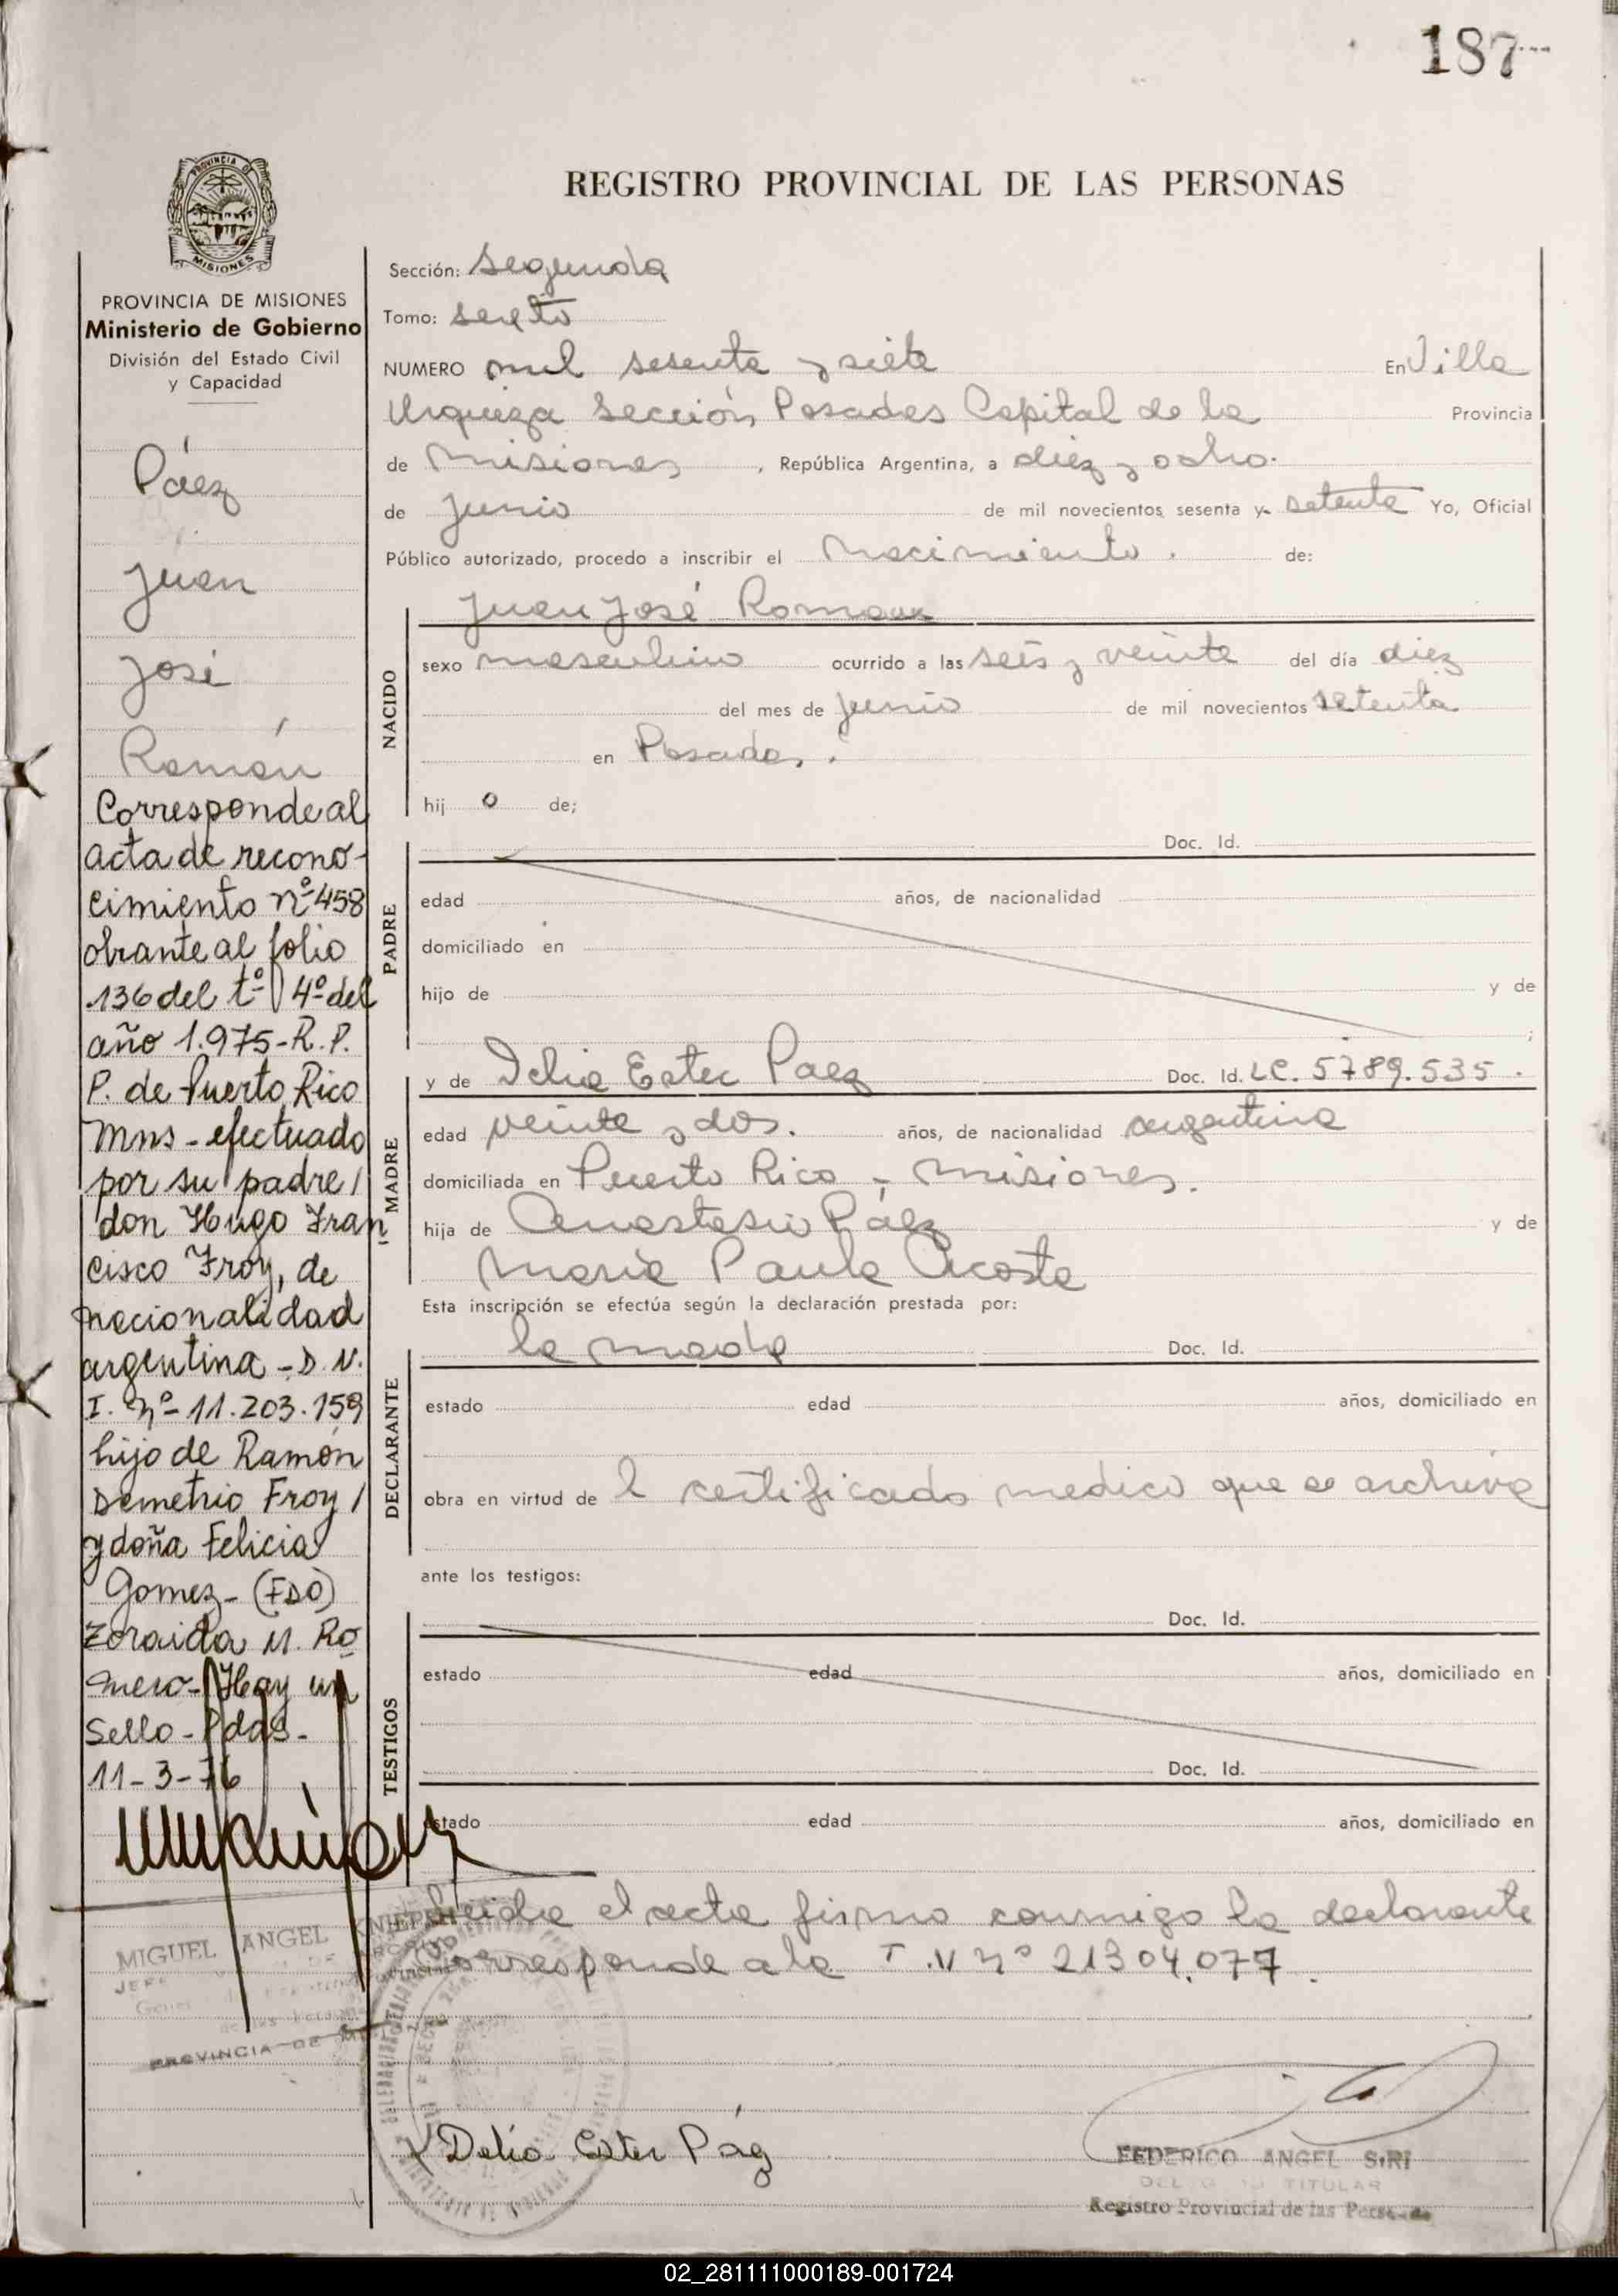 187
REGISTRO PROVINCIAL DE LAS PERSONAS
MISIONES
PROVINCIA DE MISIONES
Ministerio de Gobierno
División del Estado Civil
y Capacidad
Páez
Juan
José
Román
Corresponde al
acta de recono-
cimiento nº 458
obrante al folio
136 del tº 4º del
año 1.975-R.P.
P. de Puerto Rico
Mns - efectuado
por su padre/
don Hugo Fran
cisco Froy, de
nacionalidad
argentina - D.N.
I. nº 11.203.159
hijo de Ramón
Demetrio Froy/
y doña Felicia
Gomez - (FDO)
Zoraida M. Ro
mero - Hay un
Sello - Pdas -
11-3-76
MIGUEL ANGEL
PROVINCIA DE
Sección: Segunda
Tomo: sexto
NUMERO mil sesenta y siete En Villa
Urquiza Sección Posadas Capital de la Provincia
de Misiones, República Argentina, a diez y ocho.
de Junio de mil novecientos sesenta y setenta Yo, Oficial
Público autorizado, procedo a inscribir el nacimiento. de:
NACIDO
Juan José Roman
sexo masculino ocurrido a las seis y veinte del día diez
del mes de junio de mil novecientos setenta
en Posadas.
hij o de;
PADRE
Doc. Id.
edad años, de nacionalidad
domiciliado en
hijo de y de
;
MADRE
y de Delia Ester Paez Doc. Id. LC. 5789.535.
edad veinte y dos. años, de nacionalidad argentina
domiciliada en Puerto Rico - Misiones.
hija de Anastasio Páez y de
Maria Paula Acosta
Esta inscripción se efectúa según la declaración prestada por:
DECLARANTE
la madre Doc. Id.
estado edad años, domiciliado en
obra en virtud de l certificado medico que se archiva
ante los testigos:
TESTIGOS
Doc. Id.
estado edad años, domiciliado en
Doc. Id.
estado edad años, domiciliado en
Leida el acta firma conmigo la declarante
Corresponde a la T.N nº 21304.077.
Delia Ester Páez
FEDERICO ANGEL SIRI
TITULAR
Registro Provincial de las Personas
02_281111000189-001724